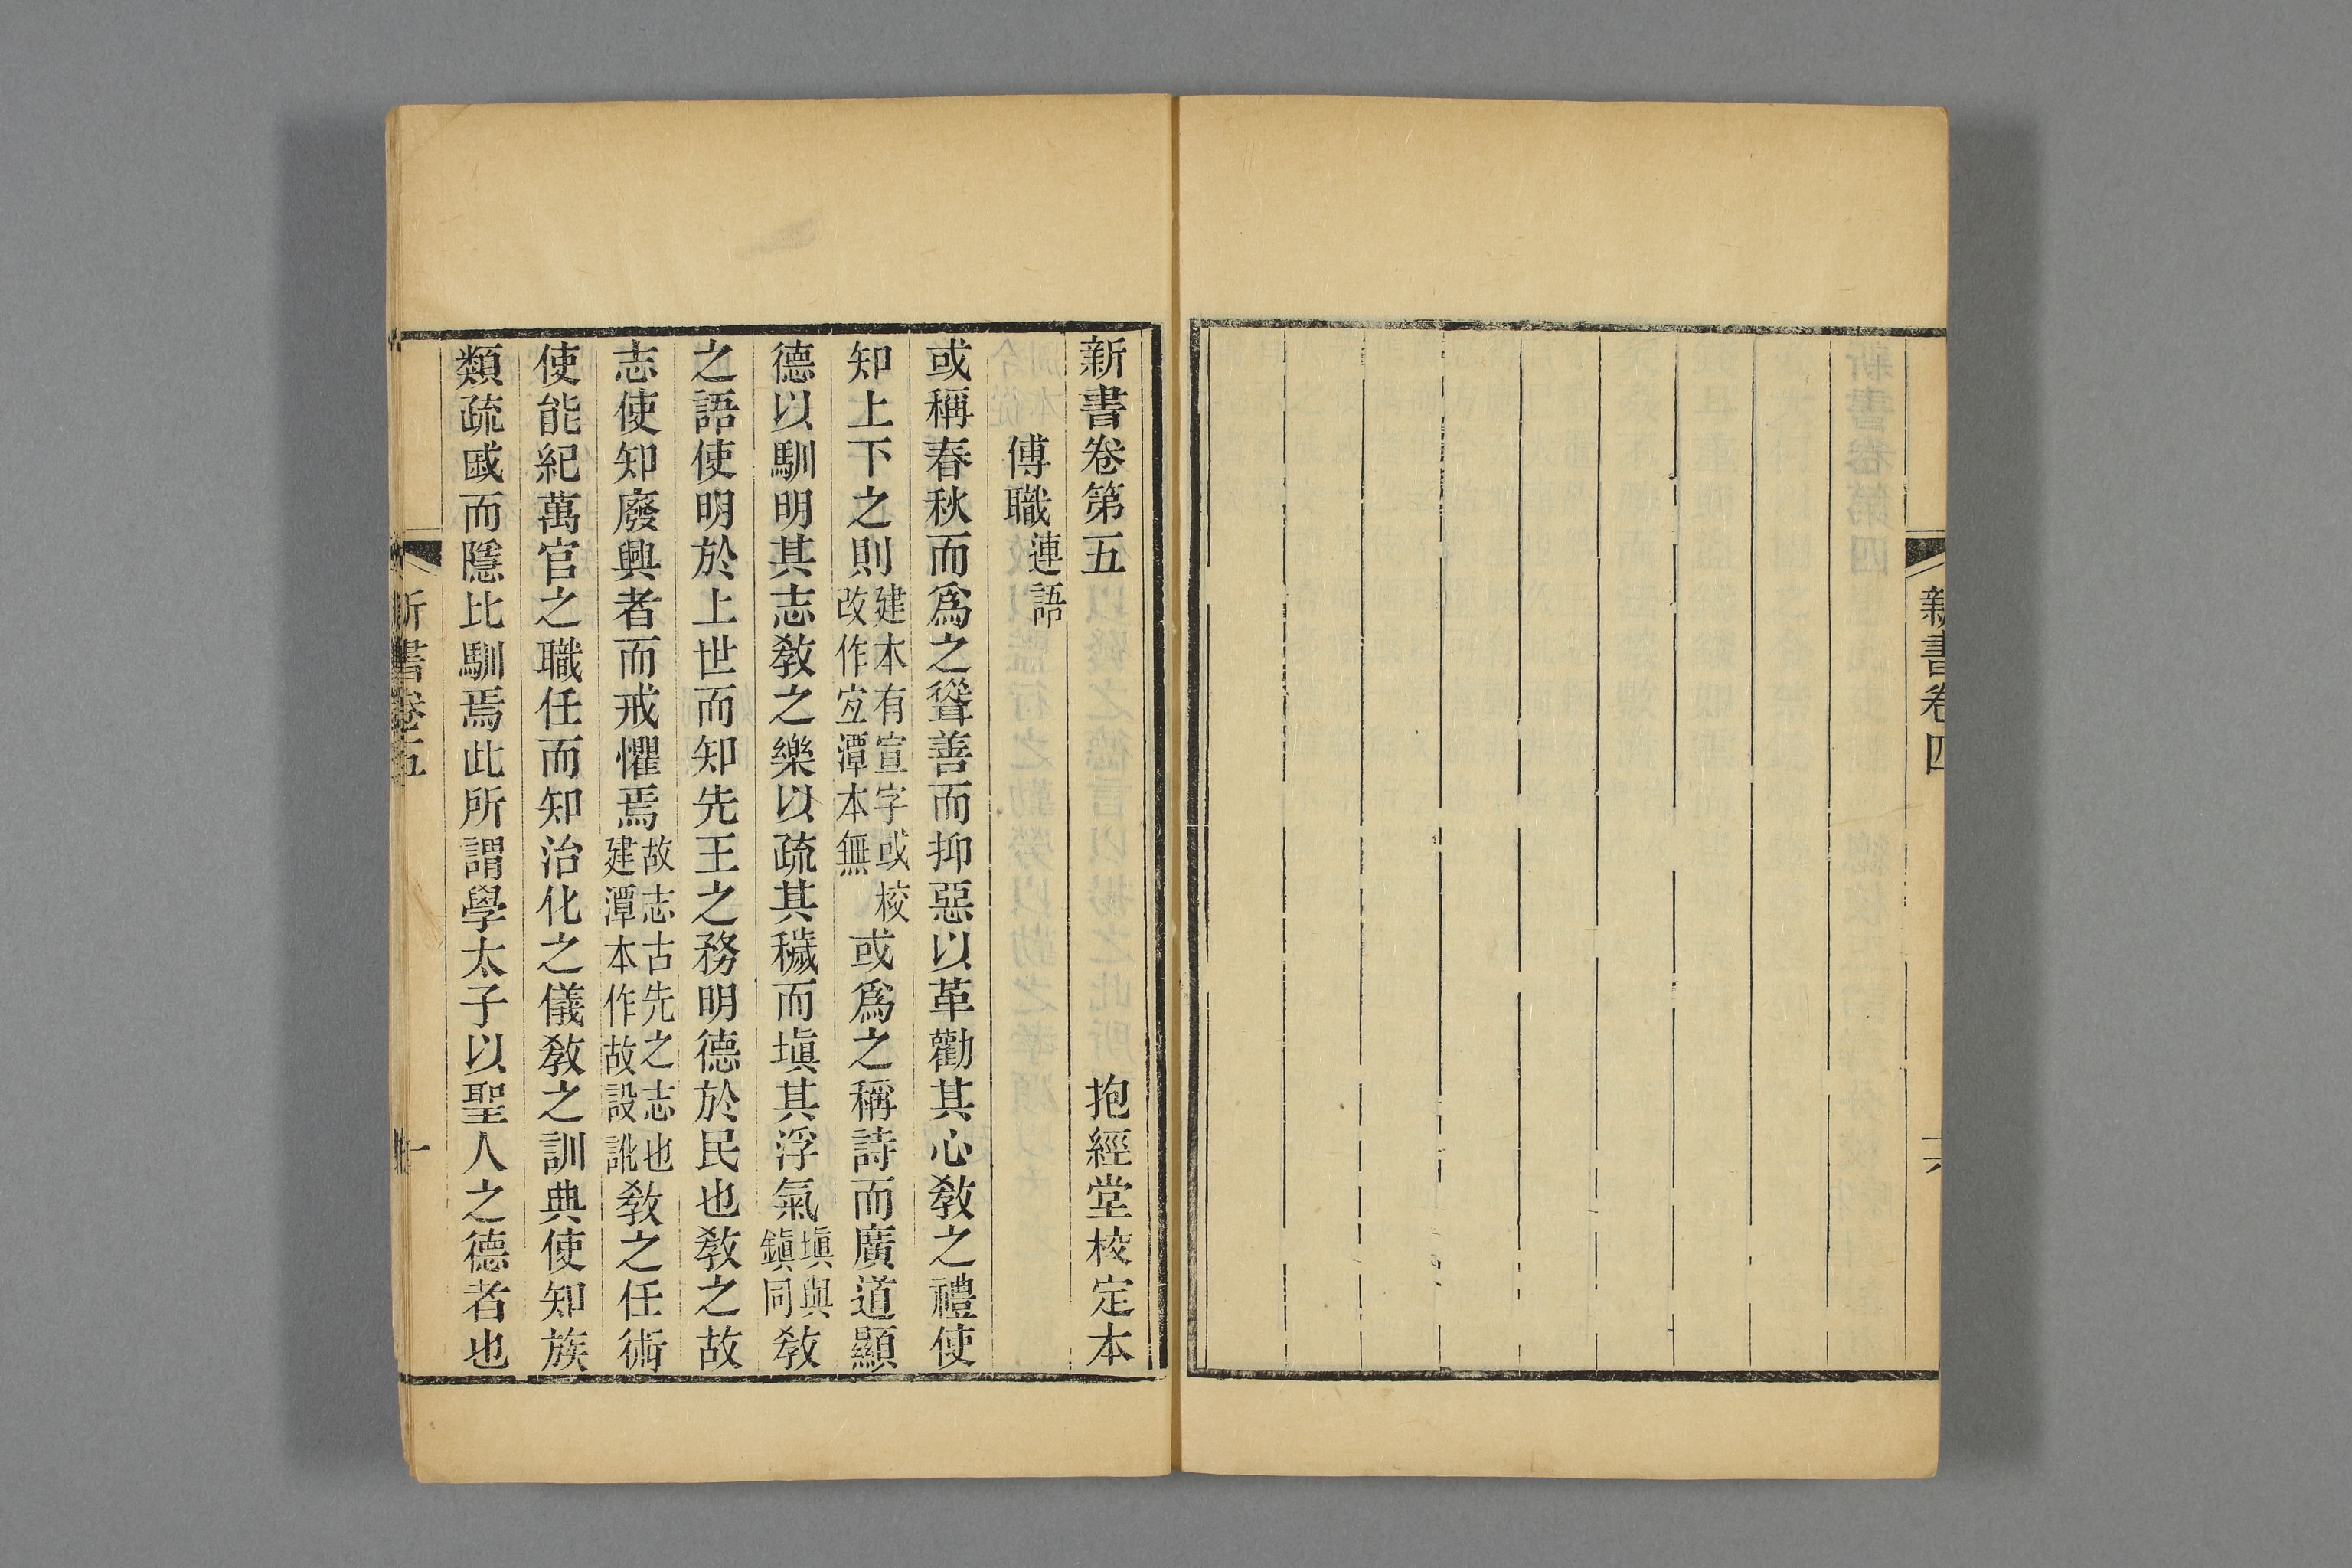 新書卷四
十六
新書卷第五　抱經堂校定本
傅職連語
或稱春秋而爲之聳善而抑惡以革勸其心敎之禮使
知上下之則建本有宣字或校改作宐潭本無或爲之稱詩而廣道顯
德以馴明其志敎之樂以疏其穢而塡其浮氣塡與鎭同敎
之語使明於上世而知先王之務明德於民也敎之故
志使知廢興者而戒懼焉故志古先之志也建潭本作故設訿敎之任術
使能紀萬官之職任而知治化之儀敎之訓典使知族
類疏戚而隱比馴焉此所謂學太子以聖人之德者也
新書卷五
一